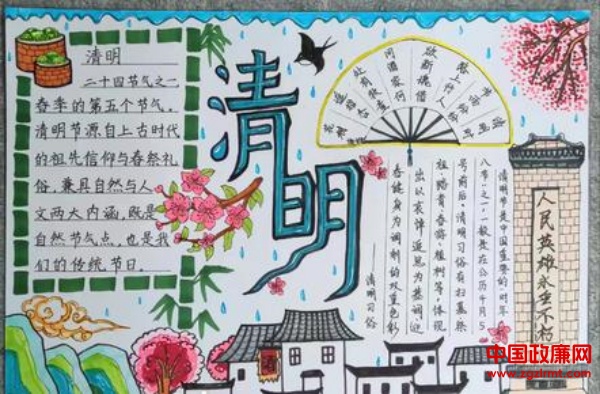 清明
二十四节气之一，
春季的第五个节气。
清明节源自上古时代
的祖先信仰与春祭礼
俗，兼具自然与人
文两大内涵，既是
自然节气点，也是我
们的传统节日。
清明
路上行人
欲断魂借
问酒家何
处有牧童
遥指杏
清明节是中国重要的"时年
八节"之一，一般是在公历4月5
号前后，清明习俗有扫墓祭
祖、踏青春游、植树等，体现
出以哀悼追思为基调，迎
春健身为调制的双重色彩
——清明习俗
人民英雄永垂不朽
中国政廉网
www.zgzlrmt.com